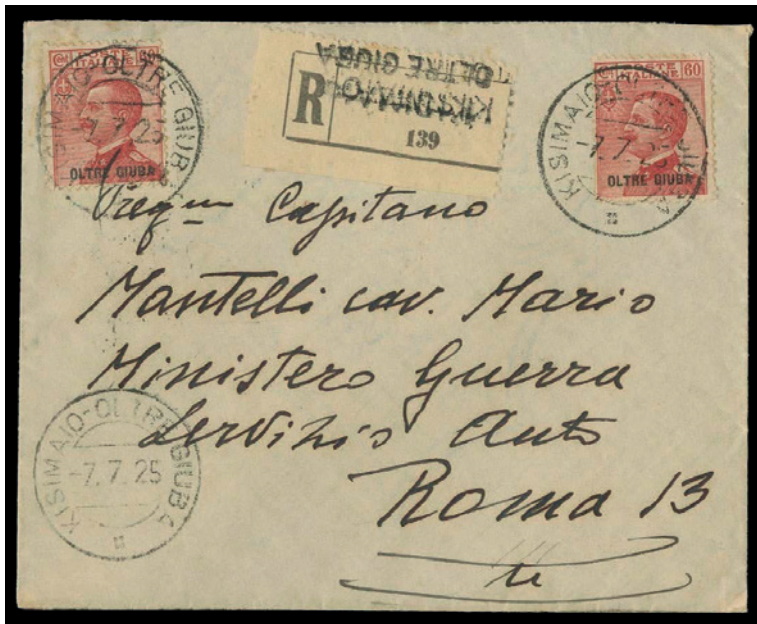 60
POSTE
ITALIANE
OLTRE GIUBA
KISIMAIO-OLTRE GIUBA
-7.7.25
R
KISIMAIO
OLTRE GIUBA
139
POSTE
ITALIANE
60
OLTRE GIUBA
KISIMAIO-OLTRE GIUBA
-7.7.25
Preg.mo Capitano
Mantelli cav. Mario
Ministero Guerra
Servizio Auto
Roma 13
KISIMAIO-OLTRE GIUBA
-7.7.25